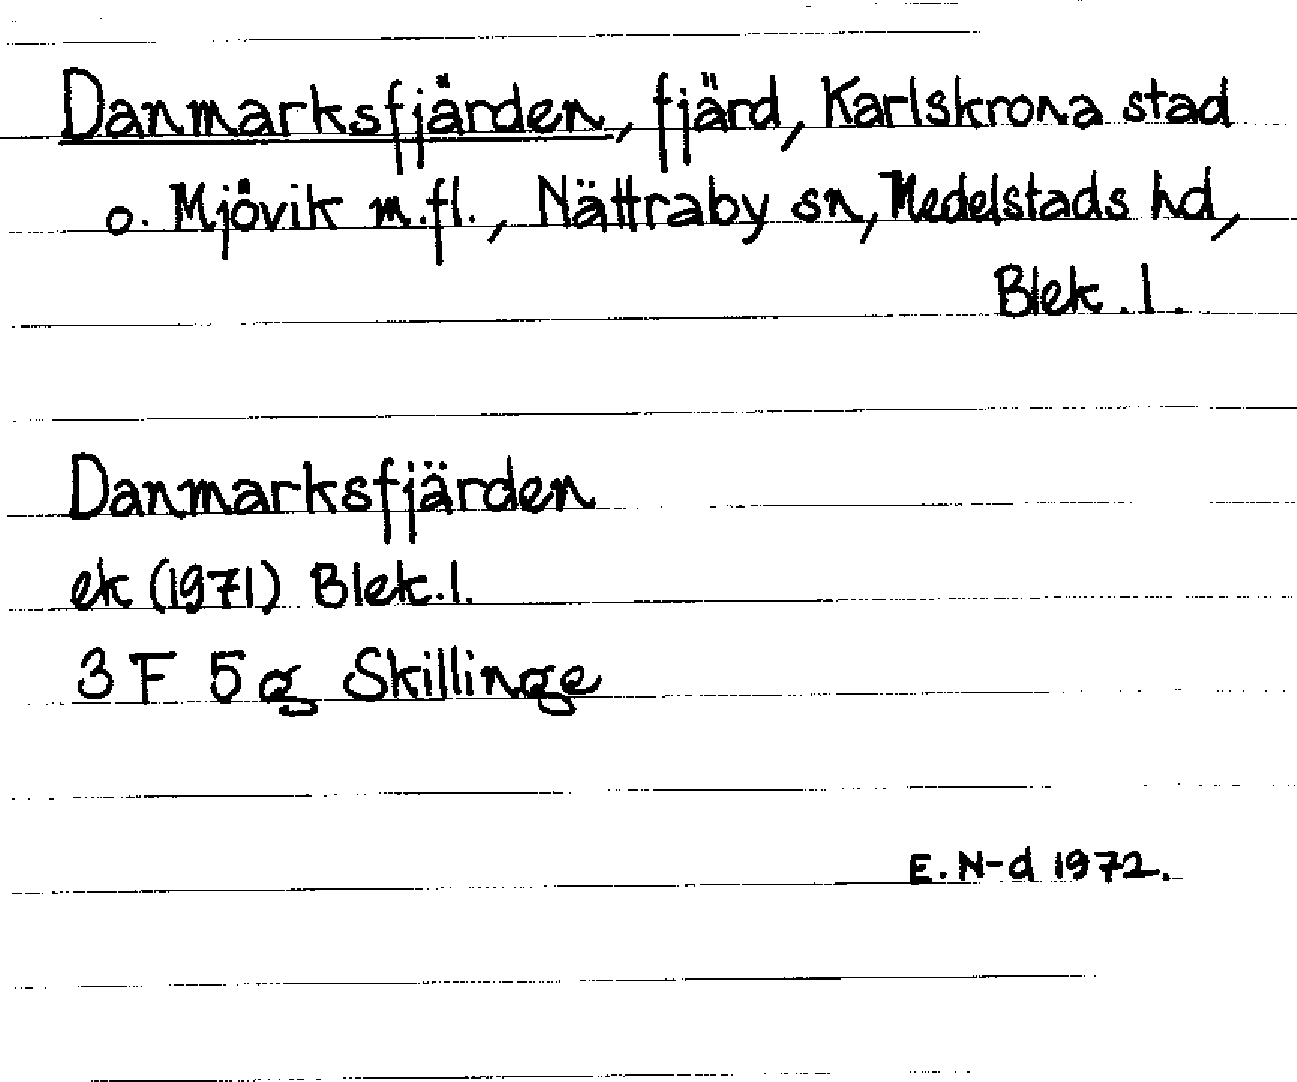 Danmarksfjärden, fjärd, Karlskrona stad
o. Mjövik m.fl., Nättraby sn, Medelstads hd,
Blek. l.
Danmarksfjärden
ek (1971) Blek. l.
3 F 5 g Skillinge
E. N-d 1972.